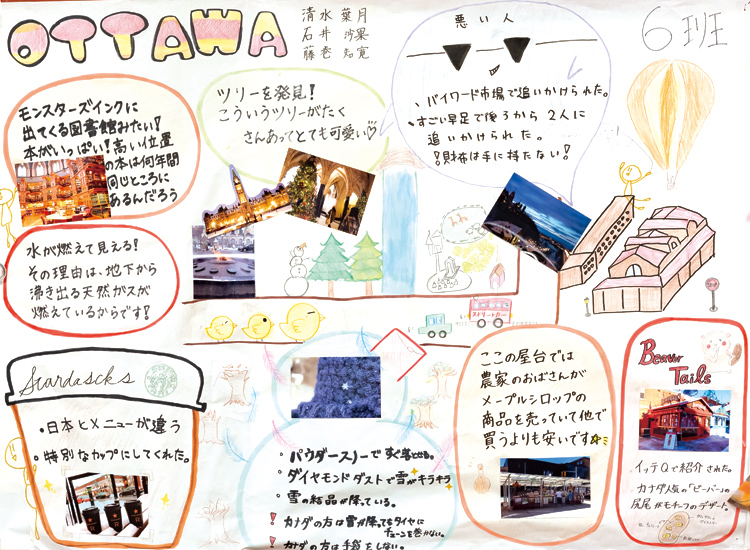 OTTAWA
清水 葉月
石井
藤巻 知寛
6班
モンスターズインクに
出てくる図書館みたい!
本がいっぱい!高い位置
の本は何年間
同じところに
あるんだろう
ツリーを発見!
こういうツリーがたく
さんあってとても可愛い♡
悪い人
、バイワード市場で追いかけられた。
、すごい早足で後ろから2人に
追いかけられた。
!財布は手に持たない!
水が燃えて見える!
その理由は、地下から
湧き出る天然がスが
燃えているからです!
ストリートカー
Stardascks
・日本とメニューが違う
・特別なカップにしてくれた。
・パウダースノーで
・ダイヤモンドダストで雪がキラキラ
・雪の結晶が降っている。
! カナダの方は雪が降ってもタイヤに
チェーンを巻かない。
! カナダの方は手袋をしない。
ここの屋台では
農家のおばさんが
メープルシロップの
商品を売っていて他で
買うよりも安いです☆
Beaver
Tails
イッテQで紹介された。
カナダ人気の「ビーバー」の
尻尾がモチーフのデザート。